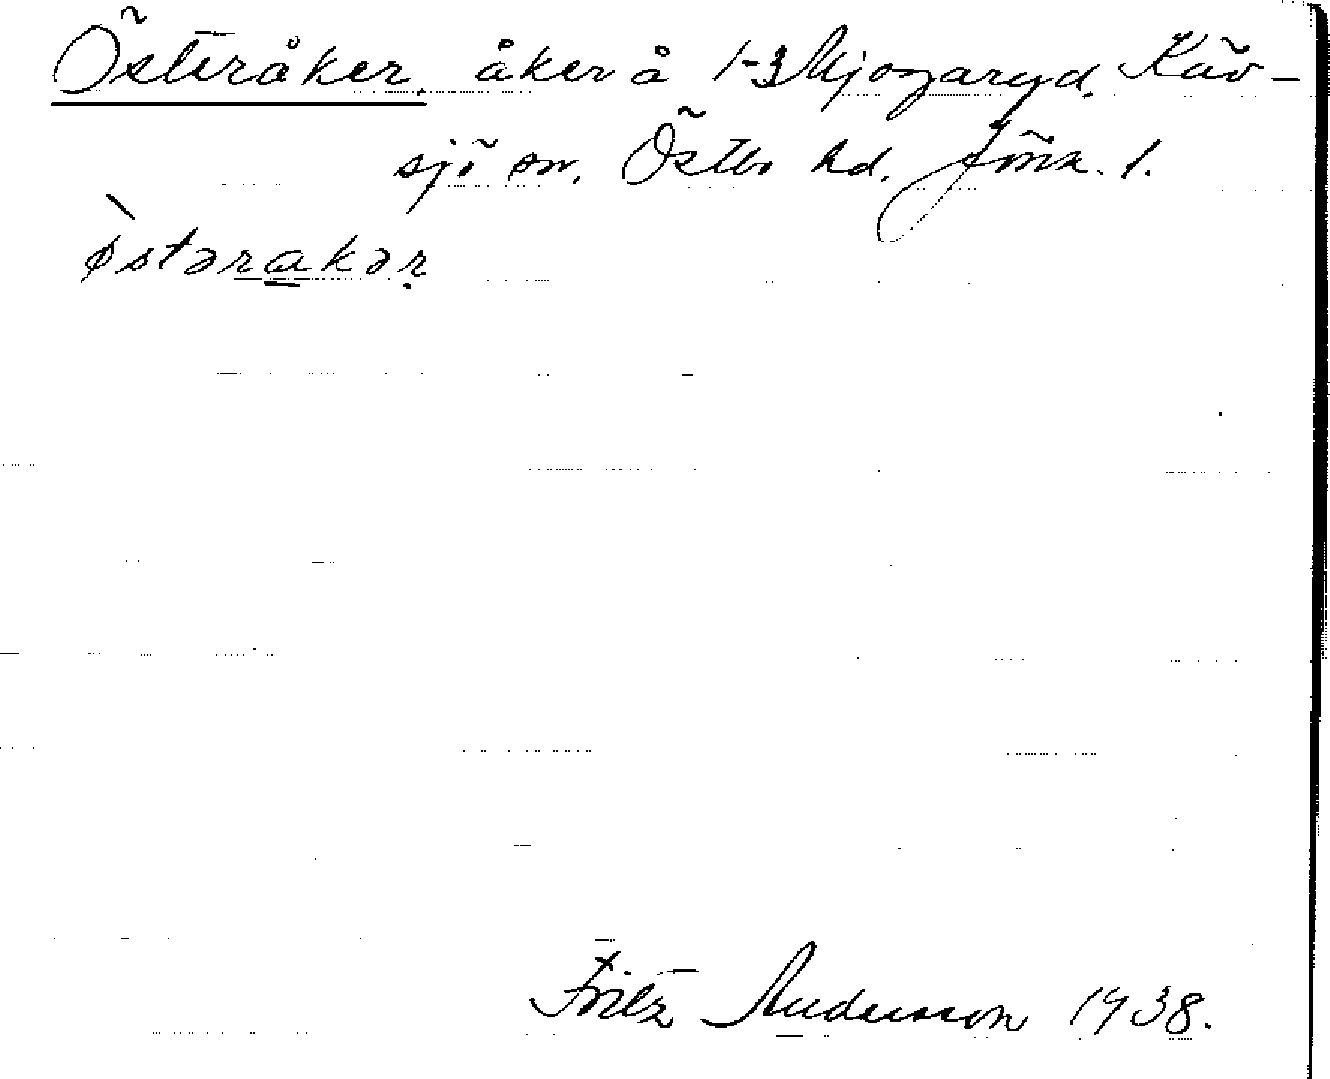 Österåker, åker å 1-3 Mjogaryd, Käv-
sjö sn. Östbo hd. Jönk. l.
østərakər
Fritz Andersson 1938.